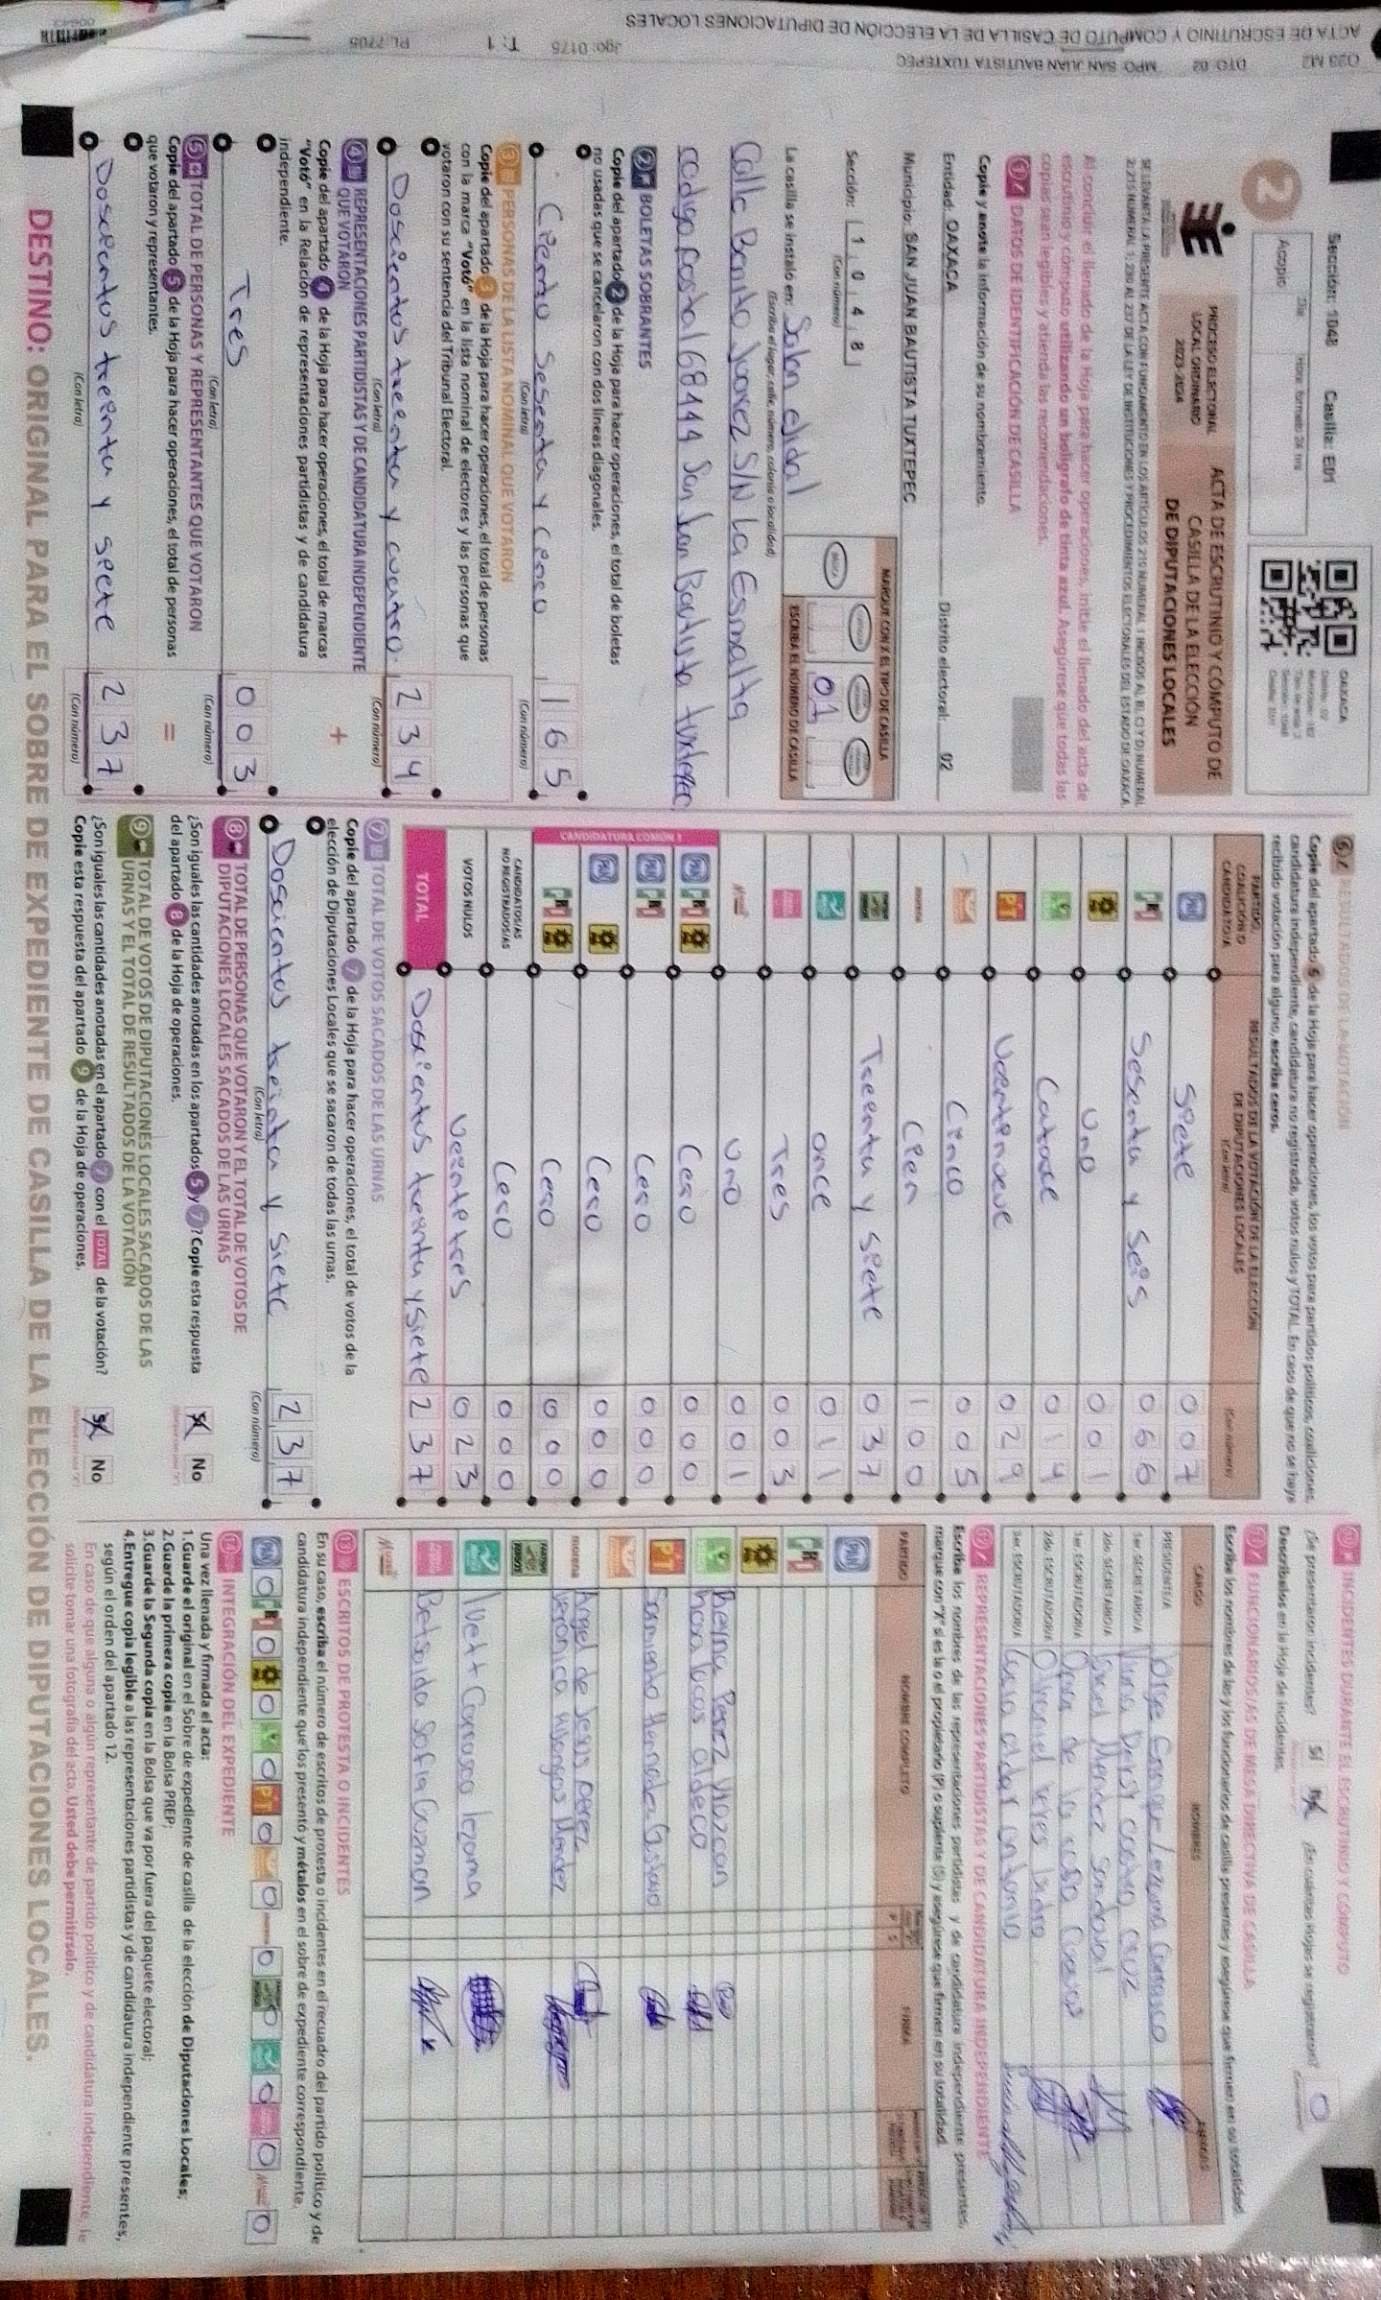 023 M2 DTO: 02 MPO: SAN JUAN BAUTISTA TUXTEPEC Jgo: 0175 T: 1 PL: 7705
ACTA DE ESCRUTINIO Y CÓMPUTO DE CASILLA DE LA ELECCIÓN DE DIPUTACIONES LOCALES
Sección: 1048 Casilla: E01
OAXACA
2
Acopio
Día Hora: formato 24 hrs
PROCESO ELECTORAL
LOCAL ORDINARIO
2023-2024
ACTA DE ESCRUTINIO Y CÓMPUTO DE
CASILLA DE LA ELECCIÓN
DE DIPUTACIONES LOCALES
Al concluir el llenado de la Hoja para hacer operaciones, inicie el llenado del acta de
escrutinio y cómputo utilizando un bolígrafo de tinta azul. Asegúrese que todas las
copias sean legibles y atienda las recomendaciones.
1 DATOS DE IDENTIFICACIÓN DE CASILLA
Copie y anote la información de su nombramiento.
Entidad: OAXACA Distrito electoral: 02
Municipio: SAN JUAN BAUTISTA TUXTEPEC
Sección: 1 0 4 8
(Con número)
MARQUE CON X EL TIPO DE CASILLA
BÁSICA
01
ESCRIBA EL NÚMERO DE CASILLA
La casilla se instaló en: Salon ejidal
(Escriba el lugar, calle, número, colonia o localidad)
Calle Benito Juarez S/N La Esmalta
codigo postal 68444 San Juan Bautista tuxtepec
2 BOLETAS SOBRANTES
Copie del apartado 2 de la Hoja para hacer operaciones, el total de boletas
no usadas que se cancelaron con dos líneas diagonales.
Ciento Sesenta y Cinco 1 6 5
(Con letra) (Con número)
3 PERSONAS DE LA LISTA NOMINAL QUE VOTARON
Copie del apartado 3 de la Hoja para hacer operaciones, el total de personas
con la marca "Votó" en la lista nominal de electores y las personas que
votaron con su sentencia del Tribunal Electoral.
Doscientos treinta y cuatro. 2 3 4
(Con letra) (Con número)
4 REPRESENTACIONES PARTIDISTAS Y DE CANDIDATURA INDEPENDIENTE
QUE VOTARON
Copie del apartado 4 de la Hoja para hacer operaciones, el total de marcas
"Votó" en la Relación de representaciones partidistas y de candidatura
independiente.
+
Tres 0 0 3
(Con letra) (Con número)
5 TOTAL DE PERSONAS Y REPRESENTANTES QUE VOTARON
Copie del apartado 5 de la Hoja para hacer operaciones, el total de personas
que votaron y representantes.
=
Doscientos treinta y siete 2 3 7
(Con letra) (Con número)
6 RESULTADOS DE LA VOTACIÓN
Copie del apartado 6 de la Hoja para hacer operaciones, los votos para partidos políticos, coaliciones,
candidatura independiente, candidatura no registrada, votos nulos y TOTAL. En caso de que no se haya
recibido votación para alguno, escriba ceros.
PARTIDO, COALICIÓN O CANDIDATO/A
RESULTADOS DE LA VOTACIÓN DE LA ELECCIÓN DE DIPUTACIONES LOCALES
(Con letra) (Con número)
PAN Siete 0 0 7
PRI Sesenta y Seis 0 6 6
PRD Uno 0 0 1
VERDE Catorce 0 1 4
PT Veintinueve 0 2 9
Cinco 0 0 5
morena Cien 1 0 0
Treenta y Siete 0 3 7
Once 0 1 1
Tres 0 0 3
Uno 0 0 1
CANDIDATURA COMÚN 1
PAN PRI PRD Cero 0 0 0
PAN PRI Cero 0 0 0
PAN PRD Cero 0 0 0
PRI PRD Cero 0 0 0
CANDIDATOS/AS NO REGISTRADOS/AS Cero 0 0 0
VOTOS NULOS Veintetres 0 2 3
TOTAL Doscientos treinta y siete 2 3 7
7 TOTAL DE VOTOS SACADOS DE LAS URNAS
Copie del apartado 7 de la Hoja para hacer operaciones, el total de votos de la
elección de Diputaciones Locales que se sacaron de todas las urnas.
Doscientos treinta y siete 2 3 7
(Con letra) (Con número)
8 TOTAL DE PERSONAS QUE VOTARON Y EL TOTAL DE VOTOS DE
DIPUTACIONES LOCALES SACADOS DE LAS URNAS
¿Son iguales las cantidades anotadas en los apartados 5 y 7? Copie esta respuesta
del apartado 8 de la Hoja de operaciones.
Sí No
9 TOTAL DE VOTOS DE DIPUTACIONES LOCALES SACADOS DE LAS
URNAS Y EL TOTAL DE RESULTADOS DE LA VOTACIÓN
¿Son iguales las cantidades anotadas en el apartado 7 con el TOTAL de la votación?
Copie esta respuesta del apartado 9 de la Hoja de operaciones.
Sí No
10 INCIDENTES DURANTE EL ESCRUTINIO Y CÓMPUTO
¿Se presentaron incidentes? Sí No ¿En cuántas Hojas se registraron? 0
Descríbalos en la Hoja de incidentes.
11 FUNCIONARIOS/AS DE MESA DIRECTIVA DE CASILLA
Escriba los nombres de las y los funcionarios de casilla presentes y asegúrese que firmen en su totalidad.
CARGO NOMBRES FIRMAS
PRESIDENTE/A Jorge Enrique Lezama Carrasco
1er. SECRETARIO/A
2do. SECRETARIO/A Mendez Sandoval
1er. ESCRUTADOR/A de la Cuevas
2do. ESCRUTADOR/A Othoniel Reyes Isidro
3er. ESCRUTADOR/A Lucia antonio
12 REPRESENTACIONES PARTIDISTAS Y DE CANDIDATURA INDEPENDIENTE
Escriba los nombres de las representaciones partidistas y de candidatura independiente presentes,
marque con "X" si es la o el propietario (P) o suplente (S) y asegúrese que firmen en su totalidad.
PARTIDO NOMBRE COMPLETO P S FIRMA
PAN
PRI
PRD
VERDE Reyna Perez
PT Sarmiento Hernandez Gustavo
morena Angel de Jesus perez
veronica Mendez
Ivett Carrasco lezama
Betsaida Sofia Guzman
13 ESCRITOS DE PROTESTA O INCIDENTES
En su caso, escriba el número de escritos de protesta o incidentes en el recuadro del partido político y de
candidatura independiente que los presentó y métalos en el sobre de expediente correspondiente.
PAN 0 PRI 0 PRD 0 VERDE 0 PT 0 0 morena 0 0 0 0 0
14 INTEGRACIÓN DEL EXPEDIENTE
Una vez llenada y firmada el acta:
1.Guarde el original en el Sobre de expediente de casilla de la elección de Diputaciones Locales;
2.Guarde la primera copia en la Bolsa PREP;
3.Guarde la Segunda copia en la Bolsa que va por fuera del paquete electoral;
4.Entregue copia legible a las representaciones partidistas y de candidatura independiente presentes,
según el orden del apartado 12.
En caso de que alguna o algún representante de partido político y de candidatura independiente, le
solicite tomar una fotografía del acta, Usted debe permitírselo.
DESTINO: ORIGINAL PARA EL SOBRE DE EXPEDIENTE DE CASILLA DE LA ELECCIÓN DE DIPUTACIONES LOCALES.